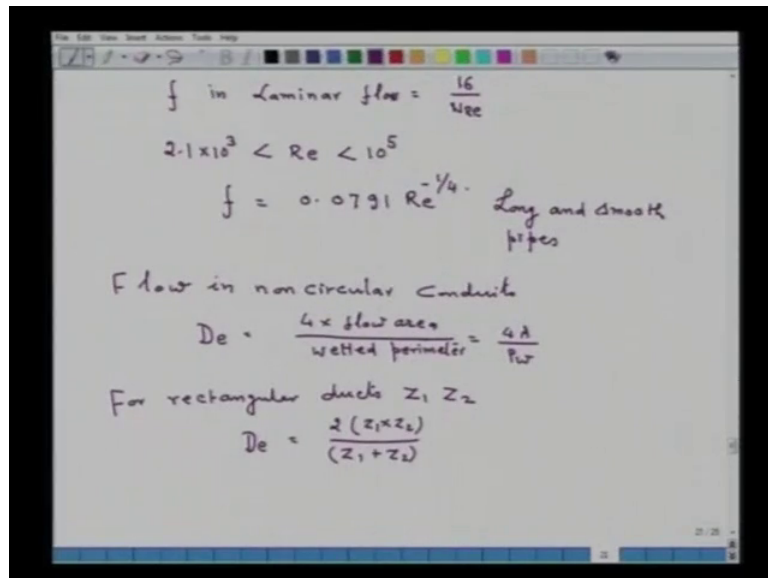 File Edit View Insert Actions Tools Help
f in Laminar flow = 16 / NRe
2.1×10³ < Re < 10⁵
f = 0.0791 Re^-1/4. Long and smooth
pipes
Flow in non circular conduits
De = 4 × flow area / wetted perimeter = 4A / Pw
For rectangular ducts Z₁ Z₂
De = 2 (Z₁×Z₂) / (Z₁ + Z₂)